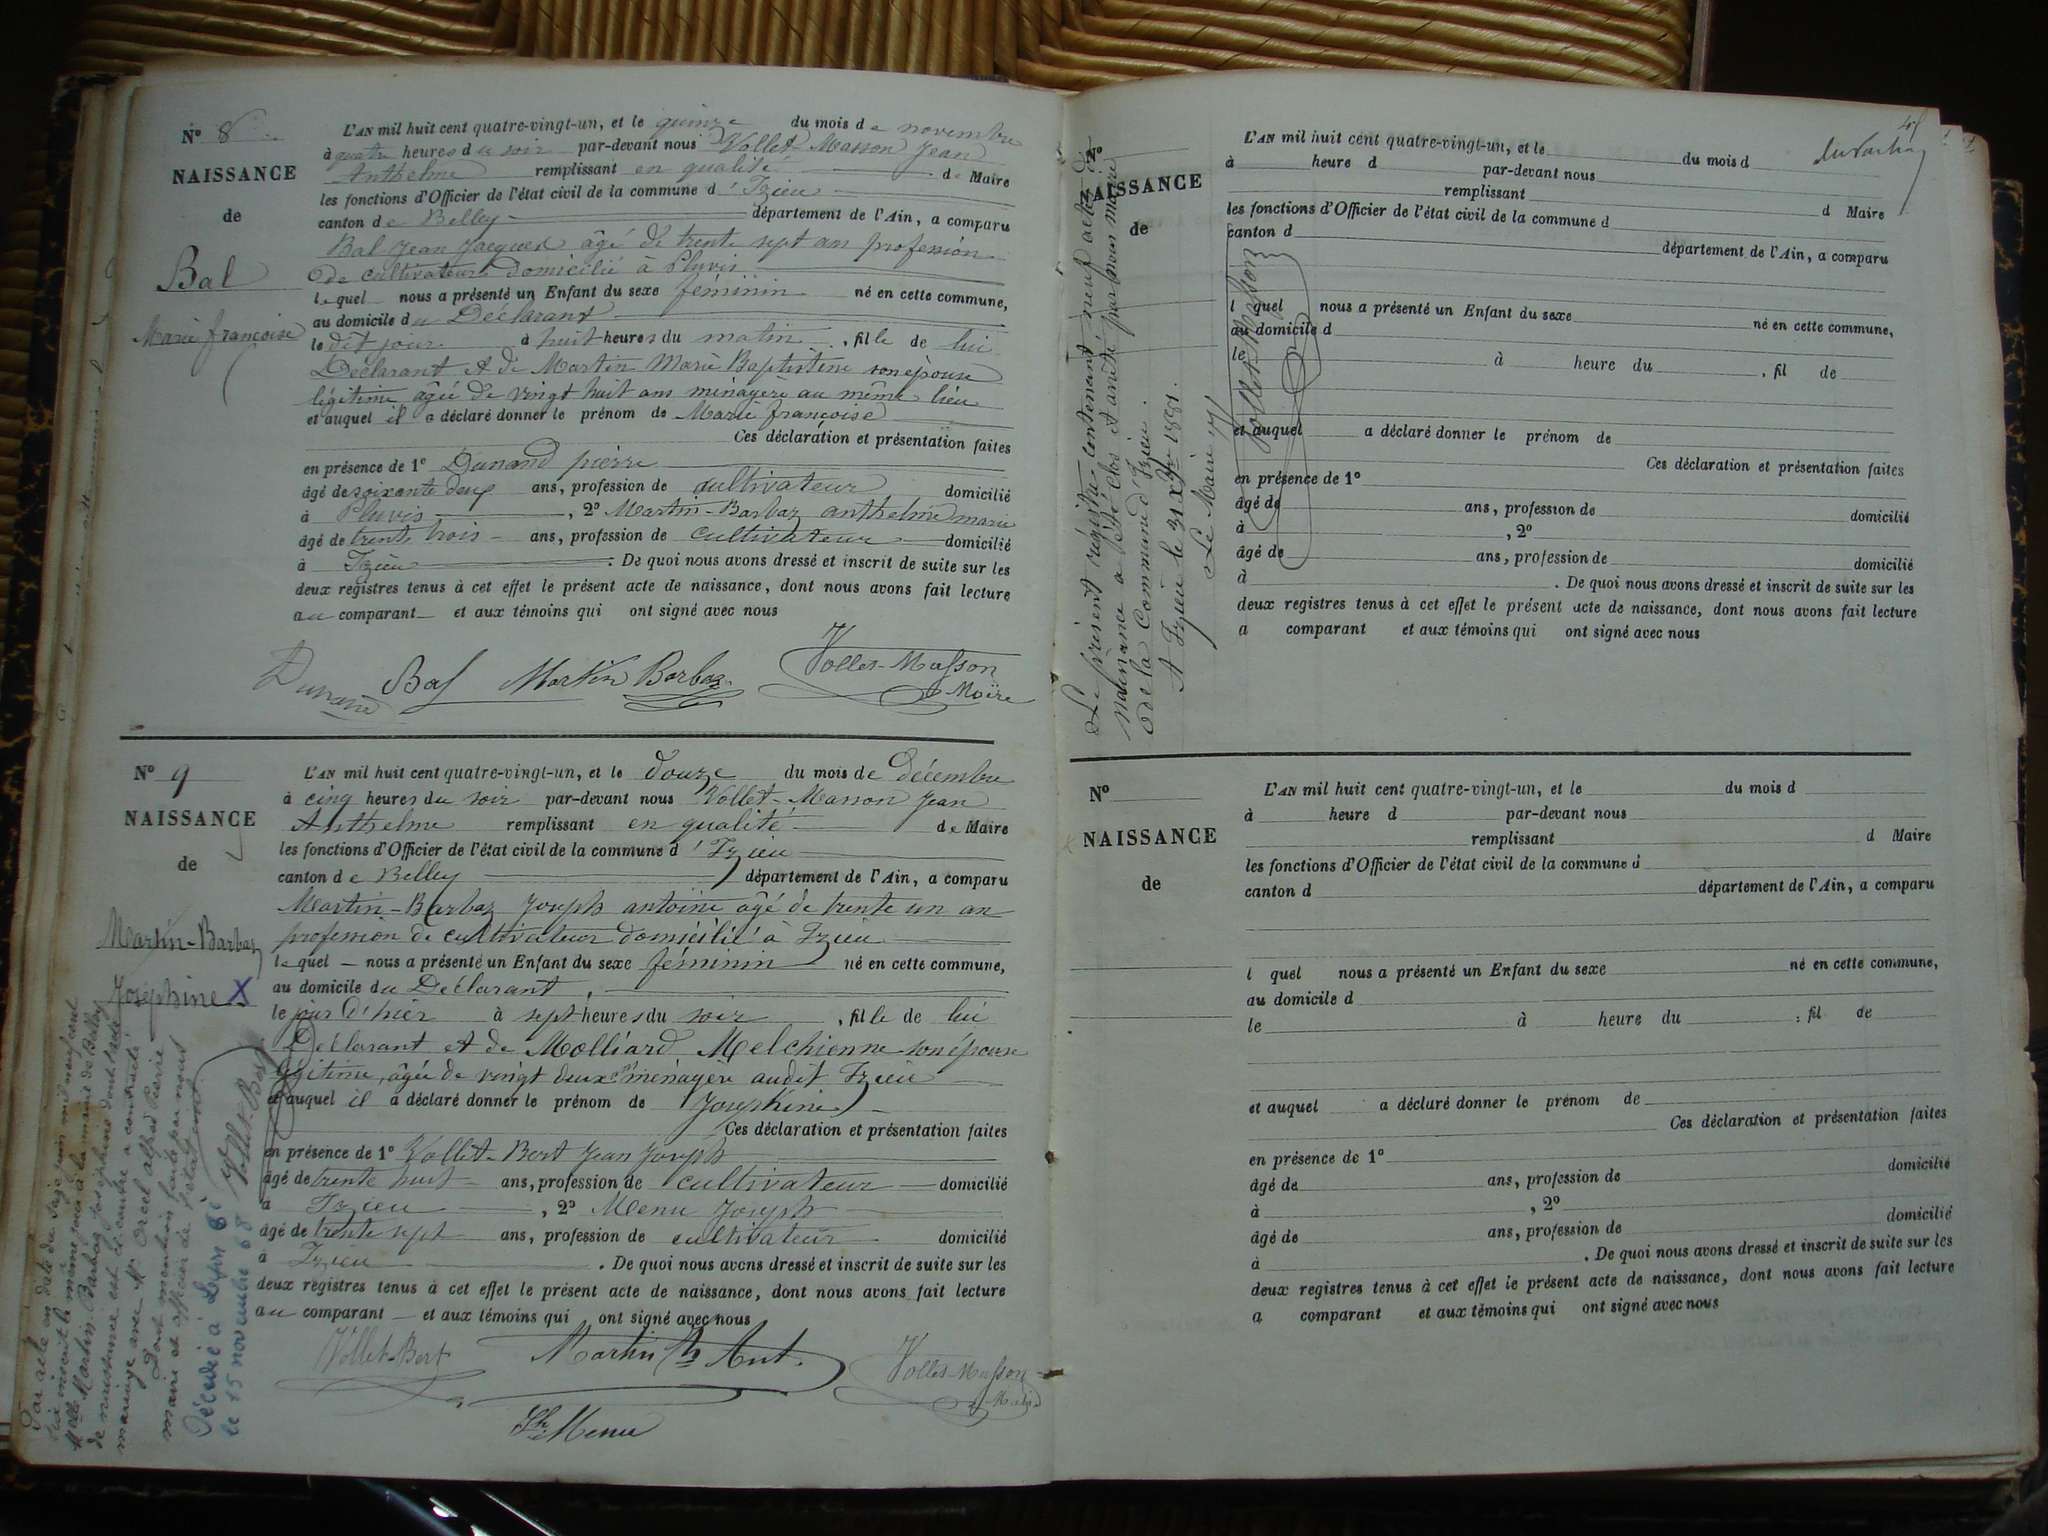 N° 8
NAISSANCE
de
Bal
Marie françoise
L'AN mil huit cent quatre-vingt-un, et le quinze du mois de novembre
à quatre heures du soir par-devant nous Vollet Masson Jean
Anthelme remplissant en qualité de Maire
les fonctions d'Officier de l'état civil de la commune d'Izieu
canton de Belley département de l'Ain, a comparu
Bal Jean Jacques âgé de trente sept ans profession
de cultivateur domicilié à Pluvis
lequel nous a présenté un Enfant du sexe féminin né en cette commune,
au domicile du Déclarant
le dit jour à huit heures du matin, fille de lui
Déclarant et de Martin Marie Baptistine son épouse
légitime âgée de vingt huit ans ménagère au même lieu
et auquel il a déclaré donner le prénom de Marie françoise
Ces déclaration et présentation faites
en présence de 1° Dunand pierre
âgé de soixante deux ans, profession de cultivateur domicilié
à Pluvis, 2° Martin-Barbaz anthelme marie
âgé de trente trois ans, profession de cultivateur domicilié
à Izieu. De quoi nous avons dressé et inscrit de suite sur les
deux registres tenus à cet effet le présent acte de naissance, dont nous avons fait lecture
au comparant et aux témoins qui ont signé avec nous
Dunand Bal Martin Barbaz Vollet-Masson
Maire
N° 9
NAISSANCE
de
Martin-Barbaz
Joséphine X
L'AN mil huit cent quatre-vingt-un, et le douze du mois de décembre
à cinq heures du soir par-devant nous Vollet-Masson Jean
Anthelme remplissant en qualité de Maire
les fonctions d'Officier de l'état civil de la commune d'Izieu
canton de Belley département de l'Ain, a comparu
Martin-Barbaz Joseph antoine âgé de trente un an
profession de cultivateur domicilié à Izieu
lequel nous a présenté un Enfant du sexe féminin né en cette commune,
au domicile du Déclarant,
le jour d'hier à sept heures du soir, fille de lui
Déclarant et de Molliard Melchienne son épouse
légitime, âgée de vingt deux ans ménagère audit Izieu
et auquel il a déclaré donner le prénom de Joséphine
Ces déclaration et présentation faites
en présence de 1° Vollet-Bert Jean Joseph
âgé de trente huit ans, profession de cultivateur domicilié
à Izieu, 2° Menu Joseph
âgé de trente sept ans, profession de cultivateur domicilié
à Izieu. De quoi nous avons dressé et inscrit de suite sur les
deux registres tenus à cet effet le présent acte de naissance, dont nous avons fait lecture
au comparant et aux témoins qui ont signé avec nous
Vollet-Bert Martin Ant. Vollet-Masson
Menu
Par acte en date du seize juin mil neuf cent
inscrit le même jour à la mairie de
Melle Martin-Barbaz Joséphine dont l'acte
de naissance est ci-contre a contracté
mariage avec Mr Orcel alfred Pierre
Dont mention faite par nous
maire et officier de l'état civil
Vollet-Bert
Décédée à Lyon 6è
le 15 novembre 68
N°
NAISSANCE
de
Le présent registre contenant neuf actes de
naissance a été clos et arrêté par nous maire
de la Commune d'Izieu.
A Izieu le 31 Xbre 1881.
Le Maire
Vollet Masson
L'AN mil huit cent quatre-vingt-un, et le du mois d
à heure d par-devant nous
remplissant d Maire
les fonctions d'Officier de l'état civil de la commune d
canton d département de l'Ain, a comparu
l quel nous a présenté un Enfant du sexe né en cette commune,
au domicile d
le à heure du, fil de
et auquel a déclaré donner le prénom de
Ces déclaration et présentation faites
en présence de 1°
âgé de ans, profession de domicilié
à, 2°
âgé de ans, profession de domicilié
à. De quoi nous avons dressé et inscrit de suite sur les
deux registres tenus à cet effet le présent acte de naissance, dont nous avons fait lecture
a comparant et aux témoins qui ont signé avec nous
N°
NAISSANCE
de
L'AN mil huit cent quatre-vingt-un, et le du mois d
à heure d par-devant nous
remplissant d Maire
les fonctions d'Officier de l'état civil de la commune d
canton d département de l'Ain, a comparu
l quel nous a présenté un Enfant du sexe né en cette commune,
au domicile d
le à heure du, fil de
et auquel a déclaré donner le prénom de
Ces déclaration et présentation faites
en présence de 1°
âgé de ans, profession de domicilié
à, 2°
âgé de ans, profession de domicilié
à. De quoi nous avons dressé et inscrit de suite sur les
deux registres tenus à cet effet le présent acte de naissance, dont nous avons fait lecture
a comparant et aux témoins qui ont signé avec nous